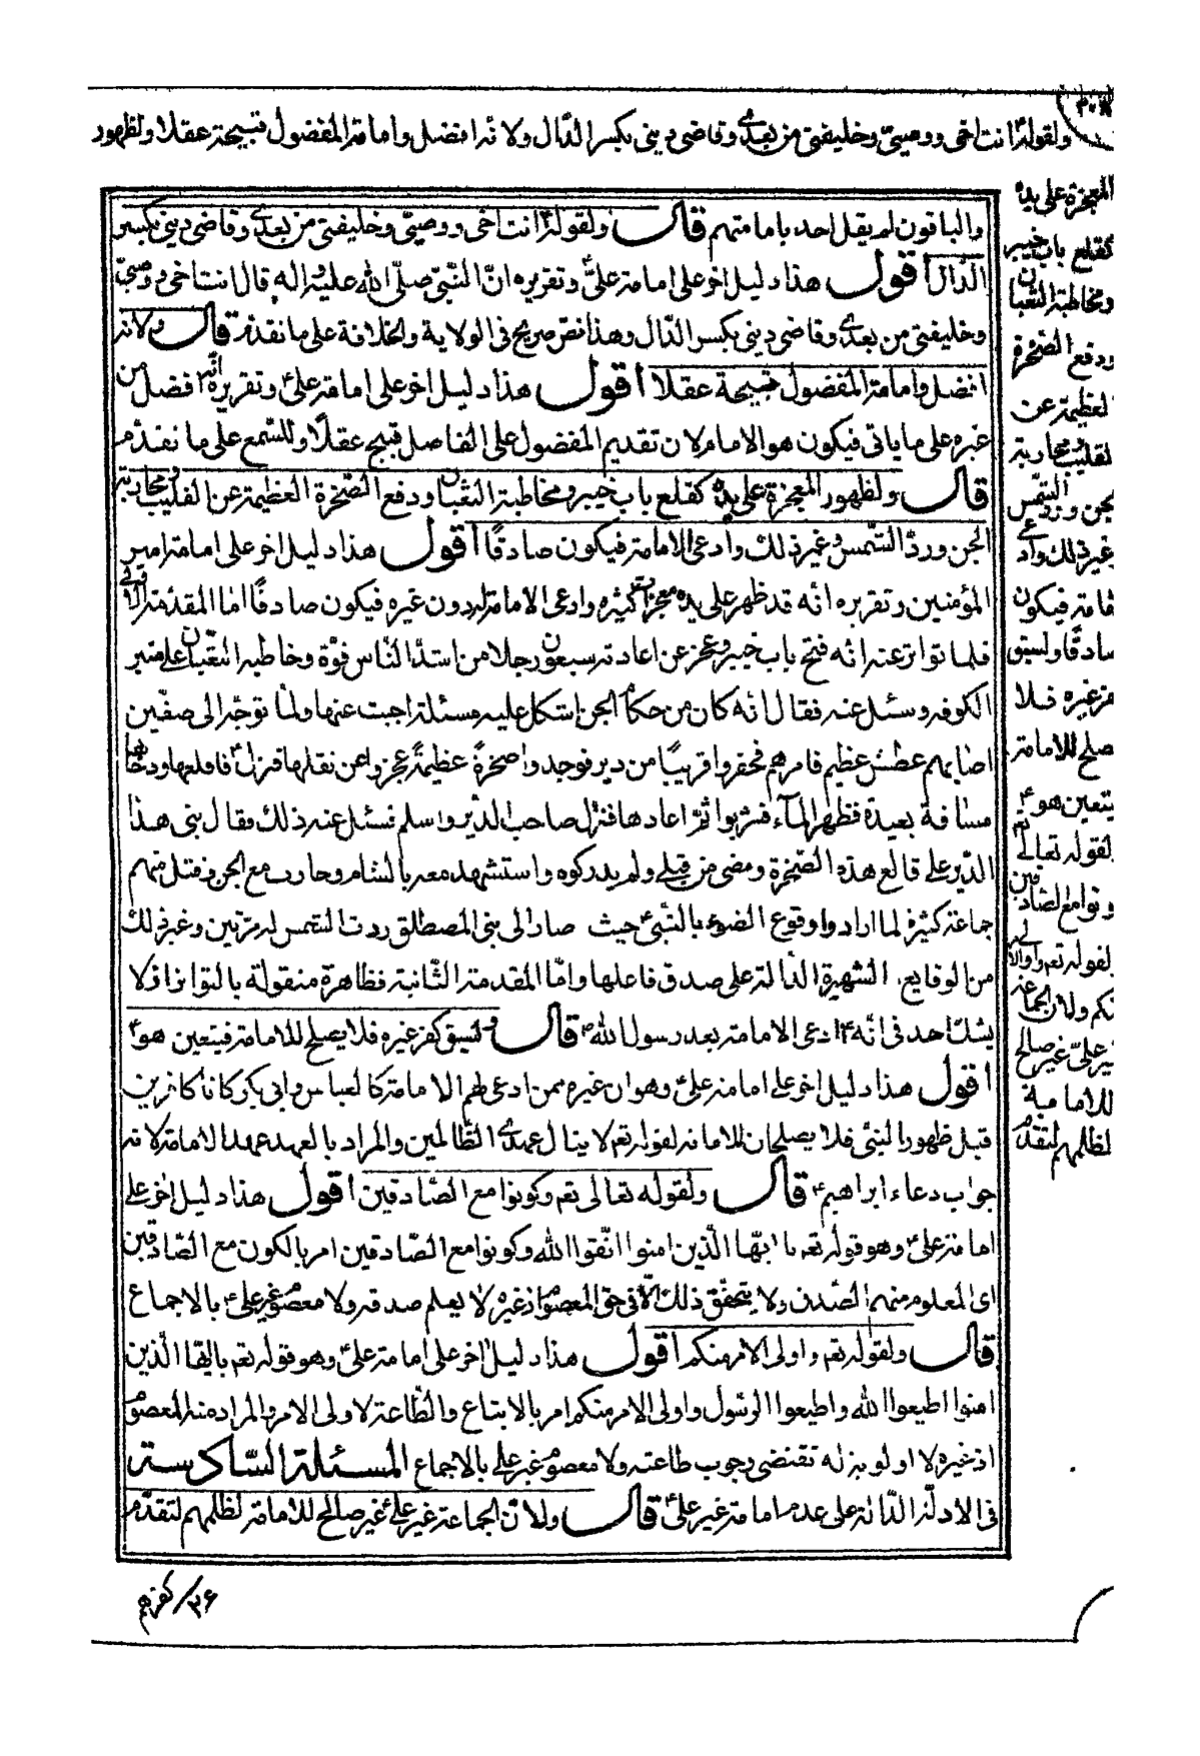 ولقوله انت اخى ووصيى وخليفتى من بعدى وقاضى دينى بكسر الدال ولانه افضل وامامة المفضول قبيحة عقلا ولظهور
المعجزة على يده
كقلع باب خيبر
ومخاطبة الثعبان
ودفع الصخرة
العظيمة عن
القليب ومحاربة
الجن ورد الشمس
وغير ذلك وادعى
الامامة فيكون
صادقا ولسبق
كفر غيره فلا
يصلح للامامة
فيتعين هو ع
ولقوله تعالى
وكونوا مع الصادقين
ولقوله تعالى واولى الامر
منكم ولان الجماعة
غير على غير صالح
للامامة
لظلمهم لتقدم
والباقون لم يقل احد بامامتهم قال ولقوله انت اخى ووصيى وخليفتى من بعدى وقاضى دينى بكسر
الدال اقول هذا دليل اخر على امامة على ع وتقريره ان النبى صلى الله عليه واله قال انت اخى ووصيى
وخليفتى من بعدى وقاضى دينى بكسر الدال وهذا نص صريح فى الولاية والخلافة على ما تقدم قال ولانه
افضل وامامة المفضول قبيحة عقلا اقول هذا دليل اخر على امامة على ع وتقريره انه افضل من
غيره على ما ياتى فيكون هو الامام لان تقديم المفضول على الفاضل قبيح عقلا وللسمع على ما تقدم
قال ولظهور المعجزة على يده كقلع باب خيبر ومخاطبة الثعبان ودفع الصخرة العظيمة عن القليب ومحاربة
الجن ورد الشمس وغير ذلك وادعى الامامة فيكون صادقا اقول هذا دليل اخر على امامة امير
المؤمنين وتقريره انه قد ظهر على يده معجزات كثيرة وادعى الامامة له دون غيره فيكون صادقا اما المقدمة الاولى
فلما تواتر عنه انه فتح باب خيبر وعجز عن اعادته سبعون رجلا من اشد الناس قوة وخاطبه الثعبان على منبر
الكوفة وسئل عنه فقال انه كان من حكام الجن اشكل عليه مسئلة اجبت عنها ولما توجه الى صفين
اصابهم عطش عظيم فامرهم فحفروا قريبا من دير فوجدوا صخرة عظيمة عجزوا عن نقلها فنزل ع فاقلعها ودحاها
مسافة بعيدة فظهر الماء فشربوا ثم اعادها فنزل صاحب الدير واسلم فسئل عنه ذلك فقال بنى هذا
الدير على قالع هذه الصخرة ومضى من قبلى ولم يدركوه واستشهد معه بالشام وحارب مع الجن وقتل منهم
جماعة كثيرة لما ارادوا وقوع الضرر بالنبى ع حيث صار الى بنى المصطلق ردت الشمس له مرتين وغير ذلك
من الوقايع الشهيرة الدالة على صدق فاعلها واما المقدمة الثانية فظاهرة منقولة بالتواتر اذ لا
يشك احد فى انه ع ادعى الامامة بعد رسول الله ص قال ولسبق كفر غيره فلا يصلح للامامة فيتعين هو ع
اقول هذا دليل اخر على امامة على ع وهو ان غيره ممن ادعى لهم الامامة كالعباس وابى بكر كانا كافرين
قبل ظهور النبى فلا يصلحان للامامة لقوله تعم لا ينال عهدى الظالمين والمراد بالعهد عهد الامامة لانه
جواب دعاء ابراهيم ع قال ولقوله تعالى تعم وكونوا مع الصادقين اقول هذا دليل اخر على
امامة على ع وهو قوله تعم يا ايها الذين امنوا اتقوا الله وكونوا مع الصادقين امر بالكون مع الصادقين
اى المعلوم منهم الصدق ولا يتحقق ذلك الا فى حق المعصوم اذ غيره لا يعلم صدقه ولا معصوم غير على ع بالاجماع
قال ولقوله تعم واولى الامر منكم اقول هذا دليل اخر على امامة على ع وهو قوله تعم يا ايها الذين
امنوا اطيعوا الله واطيعوا الرسول واولى الامر منكم امر بالاتباع والطاعة لاولى الامر والمراد منه المعصوم
اذ غيره لا اولوية له تقتضى وجوب طاعته ولا معصوم غير على بالاجماع المسئلة السادسة
فى الادلة الدالة على عدم امامة غير على ع قال ولان الجماعة غير على ع غير صالح للامامة لظلمهم لتقدم
كفرهم